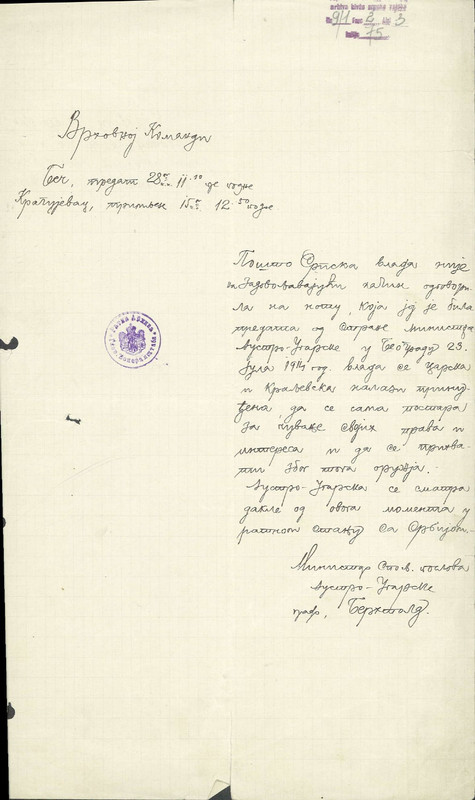 Врховној Команди
Беч, предат 28 11.10 пре подне
Крагујевац, примљен 15 12.50 подне
Пошто Српска влада није
на задовољавајући начин одговори-
ла на ноту, која јој је била
предата од стране министра
Аустро-Угарске у Београду 23.
јула 1914 год. влада се царска
и Краљевска налази прину-
ђена, да се сама постара
за чување својих права и
интереса и да се прихва-
ти због тога оружја.-
Аустро-Угарска се сматра
дакле од овога момента у
ратном стању са Србијом.-
Министар спољ. послова
Аустро-Угарске
граф, Берхтолд.
3 3
75